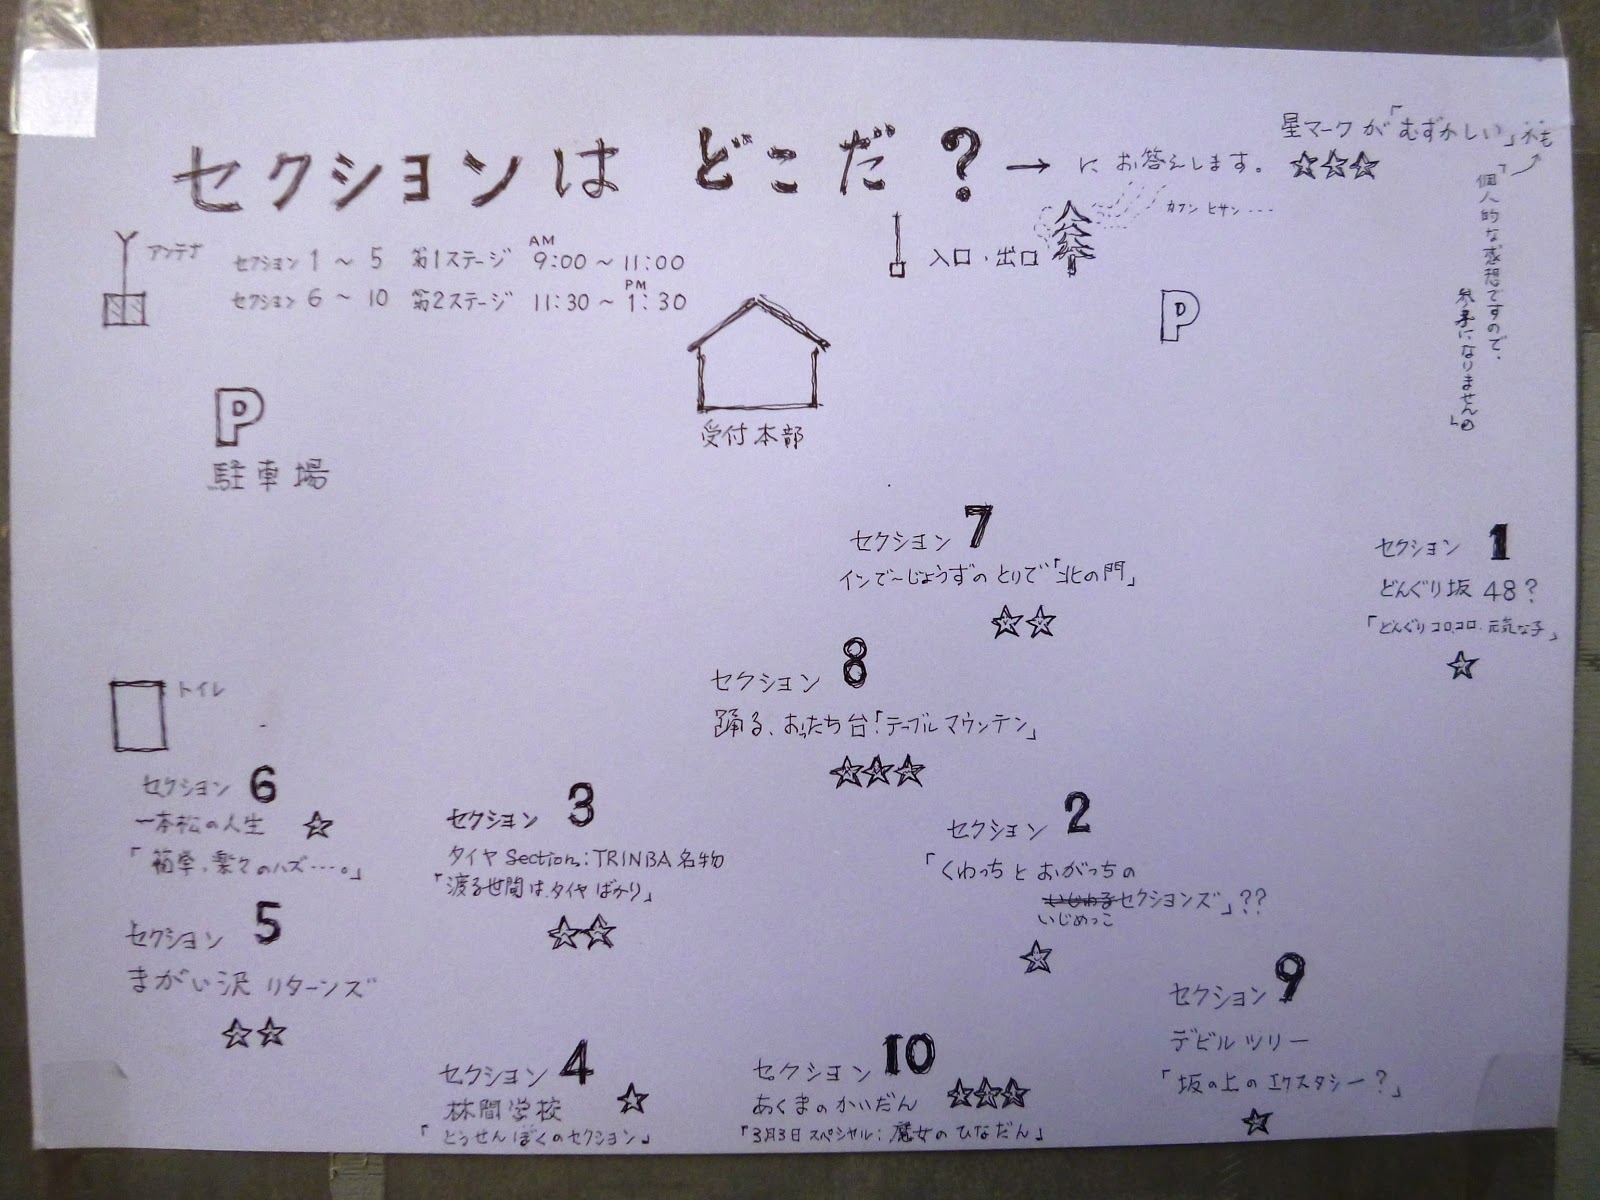 セクションは どこだ？→ に お答えします。
星マークが「むずかしい」かも
☆☆☆
「個人的な感想ですので、
参考になりません。」
アンテナ
セクション 1 〜 5 第1ステージ AM 9:00 〜 11:00
セクション 6 〜 10 第2ステージ 11:30 〜 PM 1:30
入口・出口
カフン ヒサン・・・
P
P
駐車場
受付本部
セクション 7
インで〜じょうずの とりで「北の門」
☆☆
セクション 1
どんぐり坂 48？
「どんぐりコロコロ・元気な子」
☆
セクション 8
踊る、おったち台！「テーブルマウンテン」
☆☆☆
トイレ
セクション 6
一本松の人生 ☆
「簡単、楽々のハズ・・・。」
セクション 3
タイヤ Section：TRINBA名物
「渡る世間は、タイヤ ばかり」
☆☆
セクション 2
「くわっち と おがっちの
いじわる セクションズ」？？
いじめっこ
☆
セクション 5
まがい沢 リターンズ
☆☆
セクション 9
デビル ツリー
「坂の上の エクスタシー？」
☆
セクション 4
林間学校 ☆
「とうせんぼくのセクション」
セクション 10
あくまのかいだん ☆☆☆
「3月3日スペシャル：魔女のひなだん」